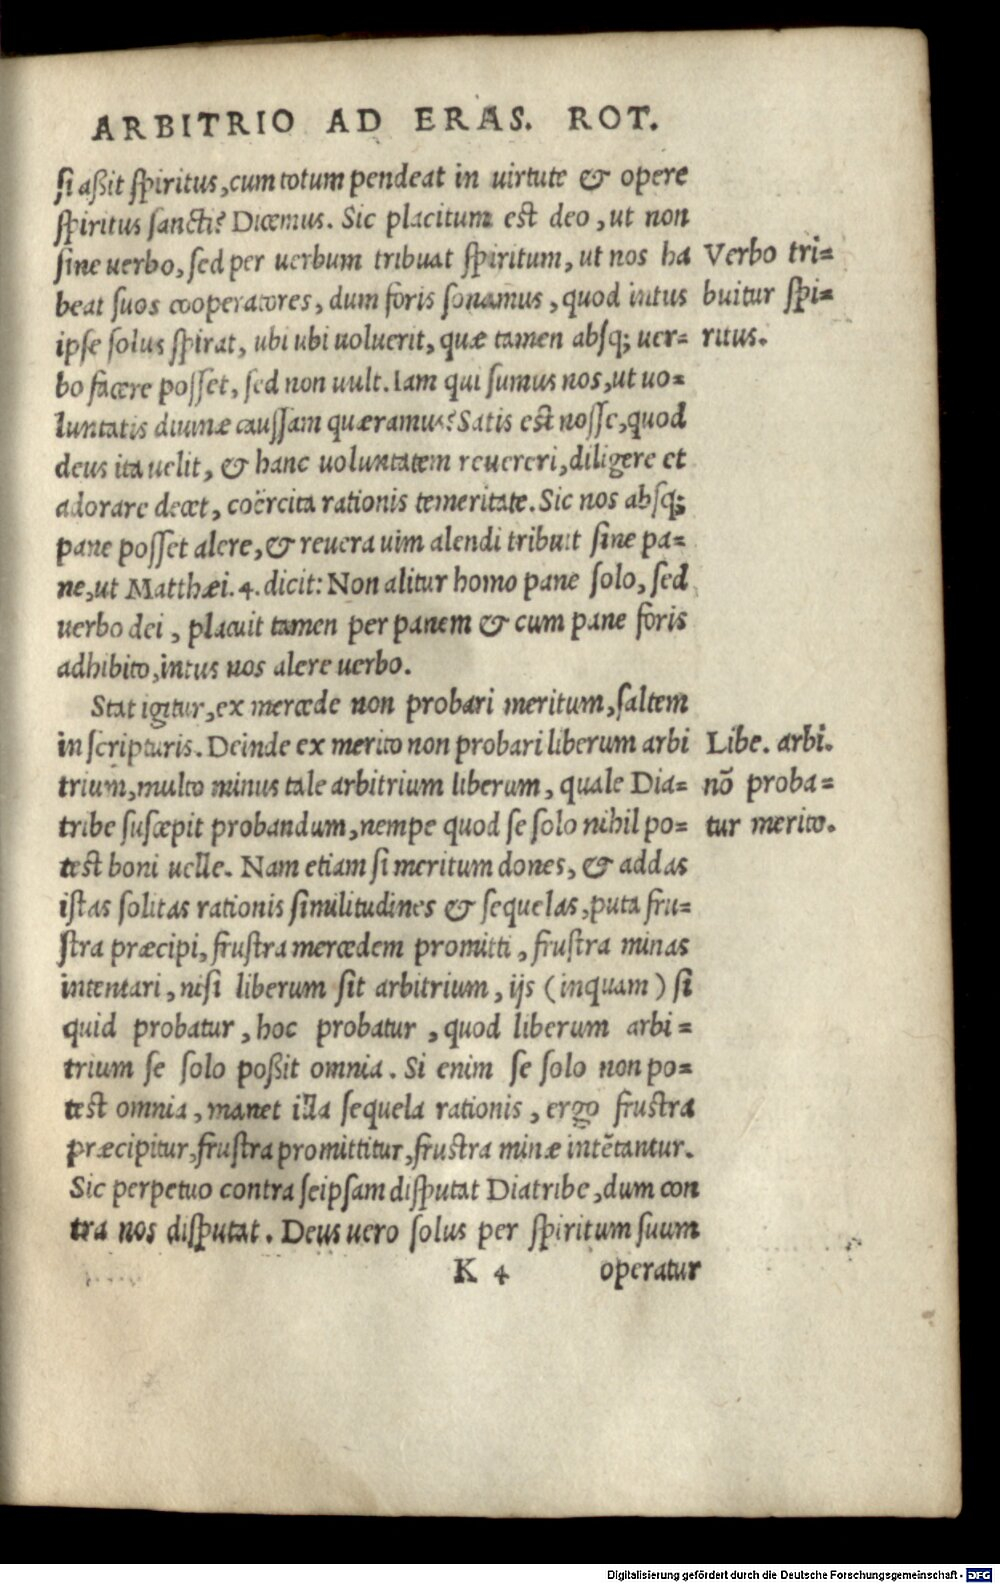 ARBITRIO AD ERAS. ROT.
si aßit spiritus, cum totum pendeat in uirtute & opere
spiritus sancti? Dicemus. Sic placitum est deo, ut non
sine uerbo, sed per uerbum tribuat spiritum, ut nos ha
beat suos cooperatores, dum foris sonamus, quod intus
ipse solus spirat, ubi ubi uoluerit, quæ tamen absq; uer=
bo facere posset, sed non uult. Iam qui sumus nos, ut uo=
luntatis diuinæ caussam quæramus? Satis est nosse, quod
deus ita uelit, & hanc uoluntatem reuereri, diligere et
adorare decet, coërcita rationis temeritate. Sic nos absq;
pane posset alere, & reuera uim alendi tribuit sine pa=
ne, ut Matthæi. 4. dicit: Non alitur homo pane solo, sed
uerbo dei, placuit tamen per panem & cum pane foris
adhibito, intus nos alere uerbo.
Verbo tri=
buitur spi=
ritus.
Stat igitur, ex mercede non probari meritum, saltem
in scripturis. Deinde ex merito non probari liberum arbi
trium, multo minus tale arbitrium liberum, quale Dia=
tribe suscepit probandum, nempe quod se solo nihil po=
test boni uelle. Nam etiam si meritum dones, & addas
istas solitas rationis similitudines & sequelas, puta fru=
stra præcipi, frustra mercedem promitti, frustra minas
intentari, nisi liberum sit arbitrium, ijs (inquam) si
quid probatur, hoc probatur, quod liberum arbi=
trium se solo poßit omnia. Si enim se solo non po=
test omnia, manet illa sequela rationis, ergo frustra
præcipitur, frustra promittitur, frustra minæ intẽtantur.
Sic perpetuo contra seipsam disputat Diatribe, dum con
tra nos disputat. Deus uero solus per spiritum suum
Libe. arbi.
nõ proba=
tur merito.
K 4 operatur
Digitalisierung gefördert durch die Deutsche Forschungsgemeinschaft - DFG